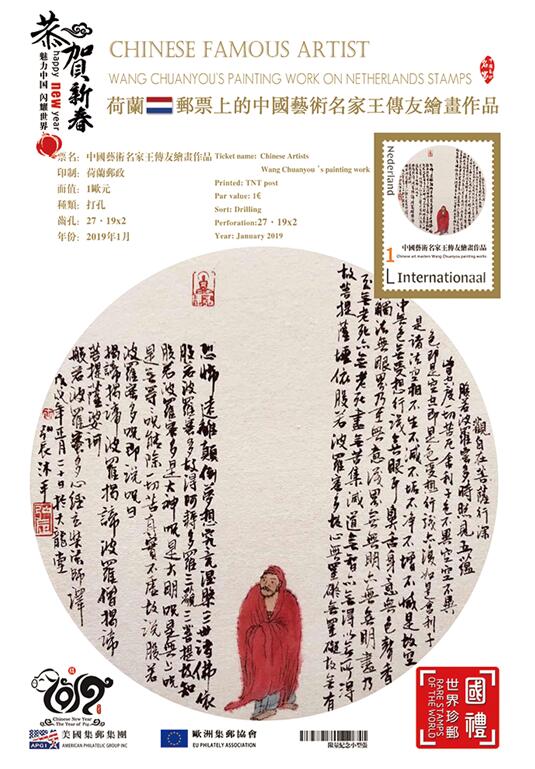 恭賀新春
happy new year
魅力中国 闪耀世界
CHINESE FAMOUS ARTIST
WANG CHUANYOU'S PAINTING WORK ON NETHERLANDS STAMPS
荷蘭郵票上的中國藝術名家王傳友繪畫作品
票名：中國藝術名家王傳友繪畫作品
印制：荷蘭郵政
面值：1歐元
種類：打孔
齒孔：27・19x2
年份：2019年1月
Ticket name: Chinese Artists
Wang Chuanyou 's painting work
Printed: TNT post
Par value: 1€
Sort: Drilling
Perforation:27・19x2
Year: January 2019
Nederland
中國藝術名家王傳友繪畫作品
Chinese art masters Wang Chuanyou painting works
1
L Internationaal
觀自在菩薩行深
般若波羅蜜多時照見五蘊
皆空度一切苦厄舍利子色不異空空不異
色即是空空即是色受想行識亦復如是舍利子
是諸法空相不生不滅不垢不淨不增不減是故空
中無色無受想行識無眼耳鼻舌身意無色聲香
味觸法無眼界乃至無意識界無無明亦無無明盡乃
至無老死亦無老死盡無苦集滅道無智亦無得以無所得
故菩提薩埵依般若波羅蜜多故心無罣礙無罣礙故無有
恐怖遠離顛倒夢想究竟涅槃三世諸佛依
般若波羅蜜多故得阿耨多羅三藐三菩提故知
般若波羅蜜多是大神咒是大明咒是無上咒
是無等等咒能除一切苦真實不虛故說般若
波羅蜜多咒即說咒曰
揭諦揭諦波羅揭諦波羅僧揭諦
菩提薩婆訶
般若波羅蜜多心經玄奘法師譯
Chinese New Year
The Year of Pig
APGI
美國集郵集團
AMERICAN PHILATELIC GROUP INC
歐洲集郵協會
EU PHILATELY ASSOCIATION
限量紀念小型張
國禮
世界珍郵
RARE STAMPS
OF THE WORLD